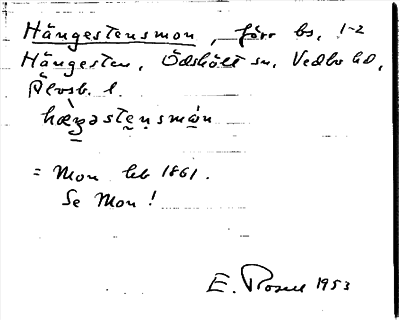 Hängestensmon, förr bs. 1-2
Hängesten, Ödskölt sn, Vedbo hd,
Älvsb. l.
hæŋəstensmón
= Mon hb 1861.
Se Mon!
E. Rosell 1953